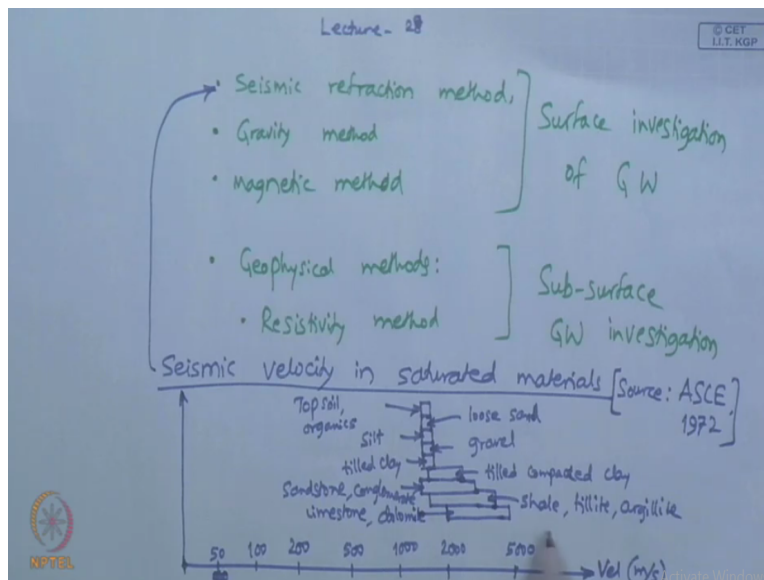 Lecture - 28
© CET
I.I.T. KGP
• Seismic refraction method,
• Gravity method
• Magnetic method
Surface investigation
of GW
• Geophysical methods:
• Resistivity method
Sub-surface
GW investigation
Seismic velocity in saturated materials [Source: ASCE,
1972]
Top soil,
organics
loose sand
silt
gravel
tilled clay
tilled compacted clay
Sandstone, conglomerate
shale, tillite, argillite
limestone, dolomite
50 100 200 500 1000 2000 5000
Vel (m/s)
NPTEL